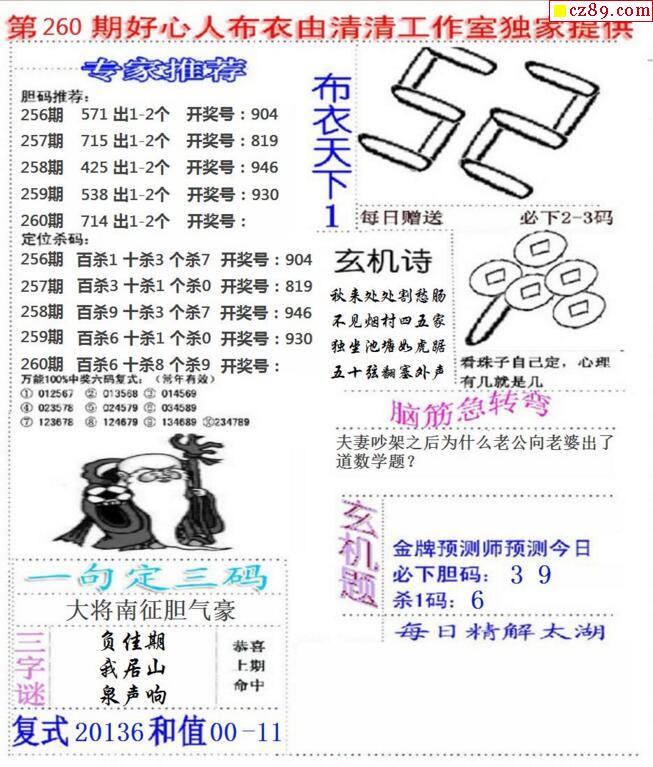 cz89.com
第260期好心人布衣由清清工作室独家提供
专家推荐
胆码推荐：
256期 571 出1-2个 开奖号：904
257期 715 出1-2个 开奖号：819
258期 425 出1-2个 开奖号：946
259期 538 出1-2个 开奖号：930
260期 714 出1-2个 开奖号：
定位杀码：
256期 百杀1 十杀3 个杀7 开奖号：904
257期 百杀3 十杀1 个杀0 开奖号：819
258期 百杀9 十杀3 个杀7 开奖号：946
259期 百杀6 十杀1 个杀0 开奖号：930
260期 百杀6 十杀8 个杀9 开奖号：
万能100%中奖六码复式：（常年有效）
① 012567 ② 013568 ③ 014569
④ 023578 ⑤ 024579 ⑥ 034589
⑦ 123678 ⑧ 124679 ⑨ 134689 ⑩234789
一句定三码
大将南征胆气豪
三字谜
负佳期
我居山
泉声响
恭喜
上期
命中
复式20136和值00-11
布衣天下1
52
每日赠送 必下2-3码
玄机诗
秋来处处割愁肠
不见烟村四五家
独坐池塘如虎踞
五十弦翻塞外声
看珠子自己定，心理
有几就是几
脑筋急转弯
夫妻吵架之后为什么老公向老婆出了
道数学题？
玄机题
金牌预测师预测今日
必下胆码： 3 9
杀1码： 6
每日精解太湖